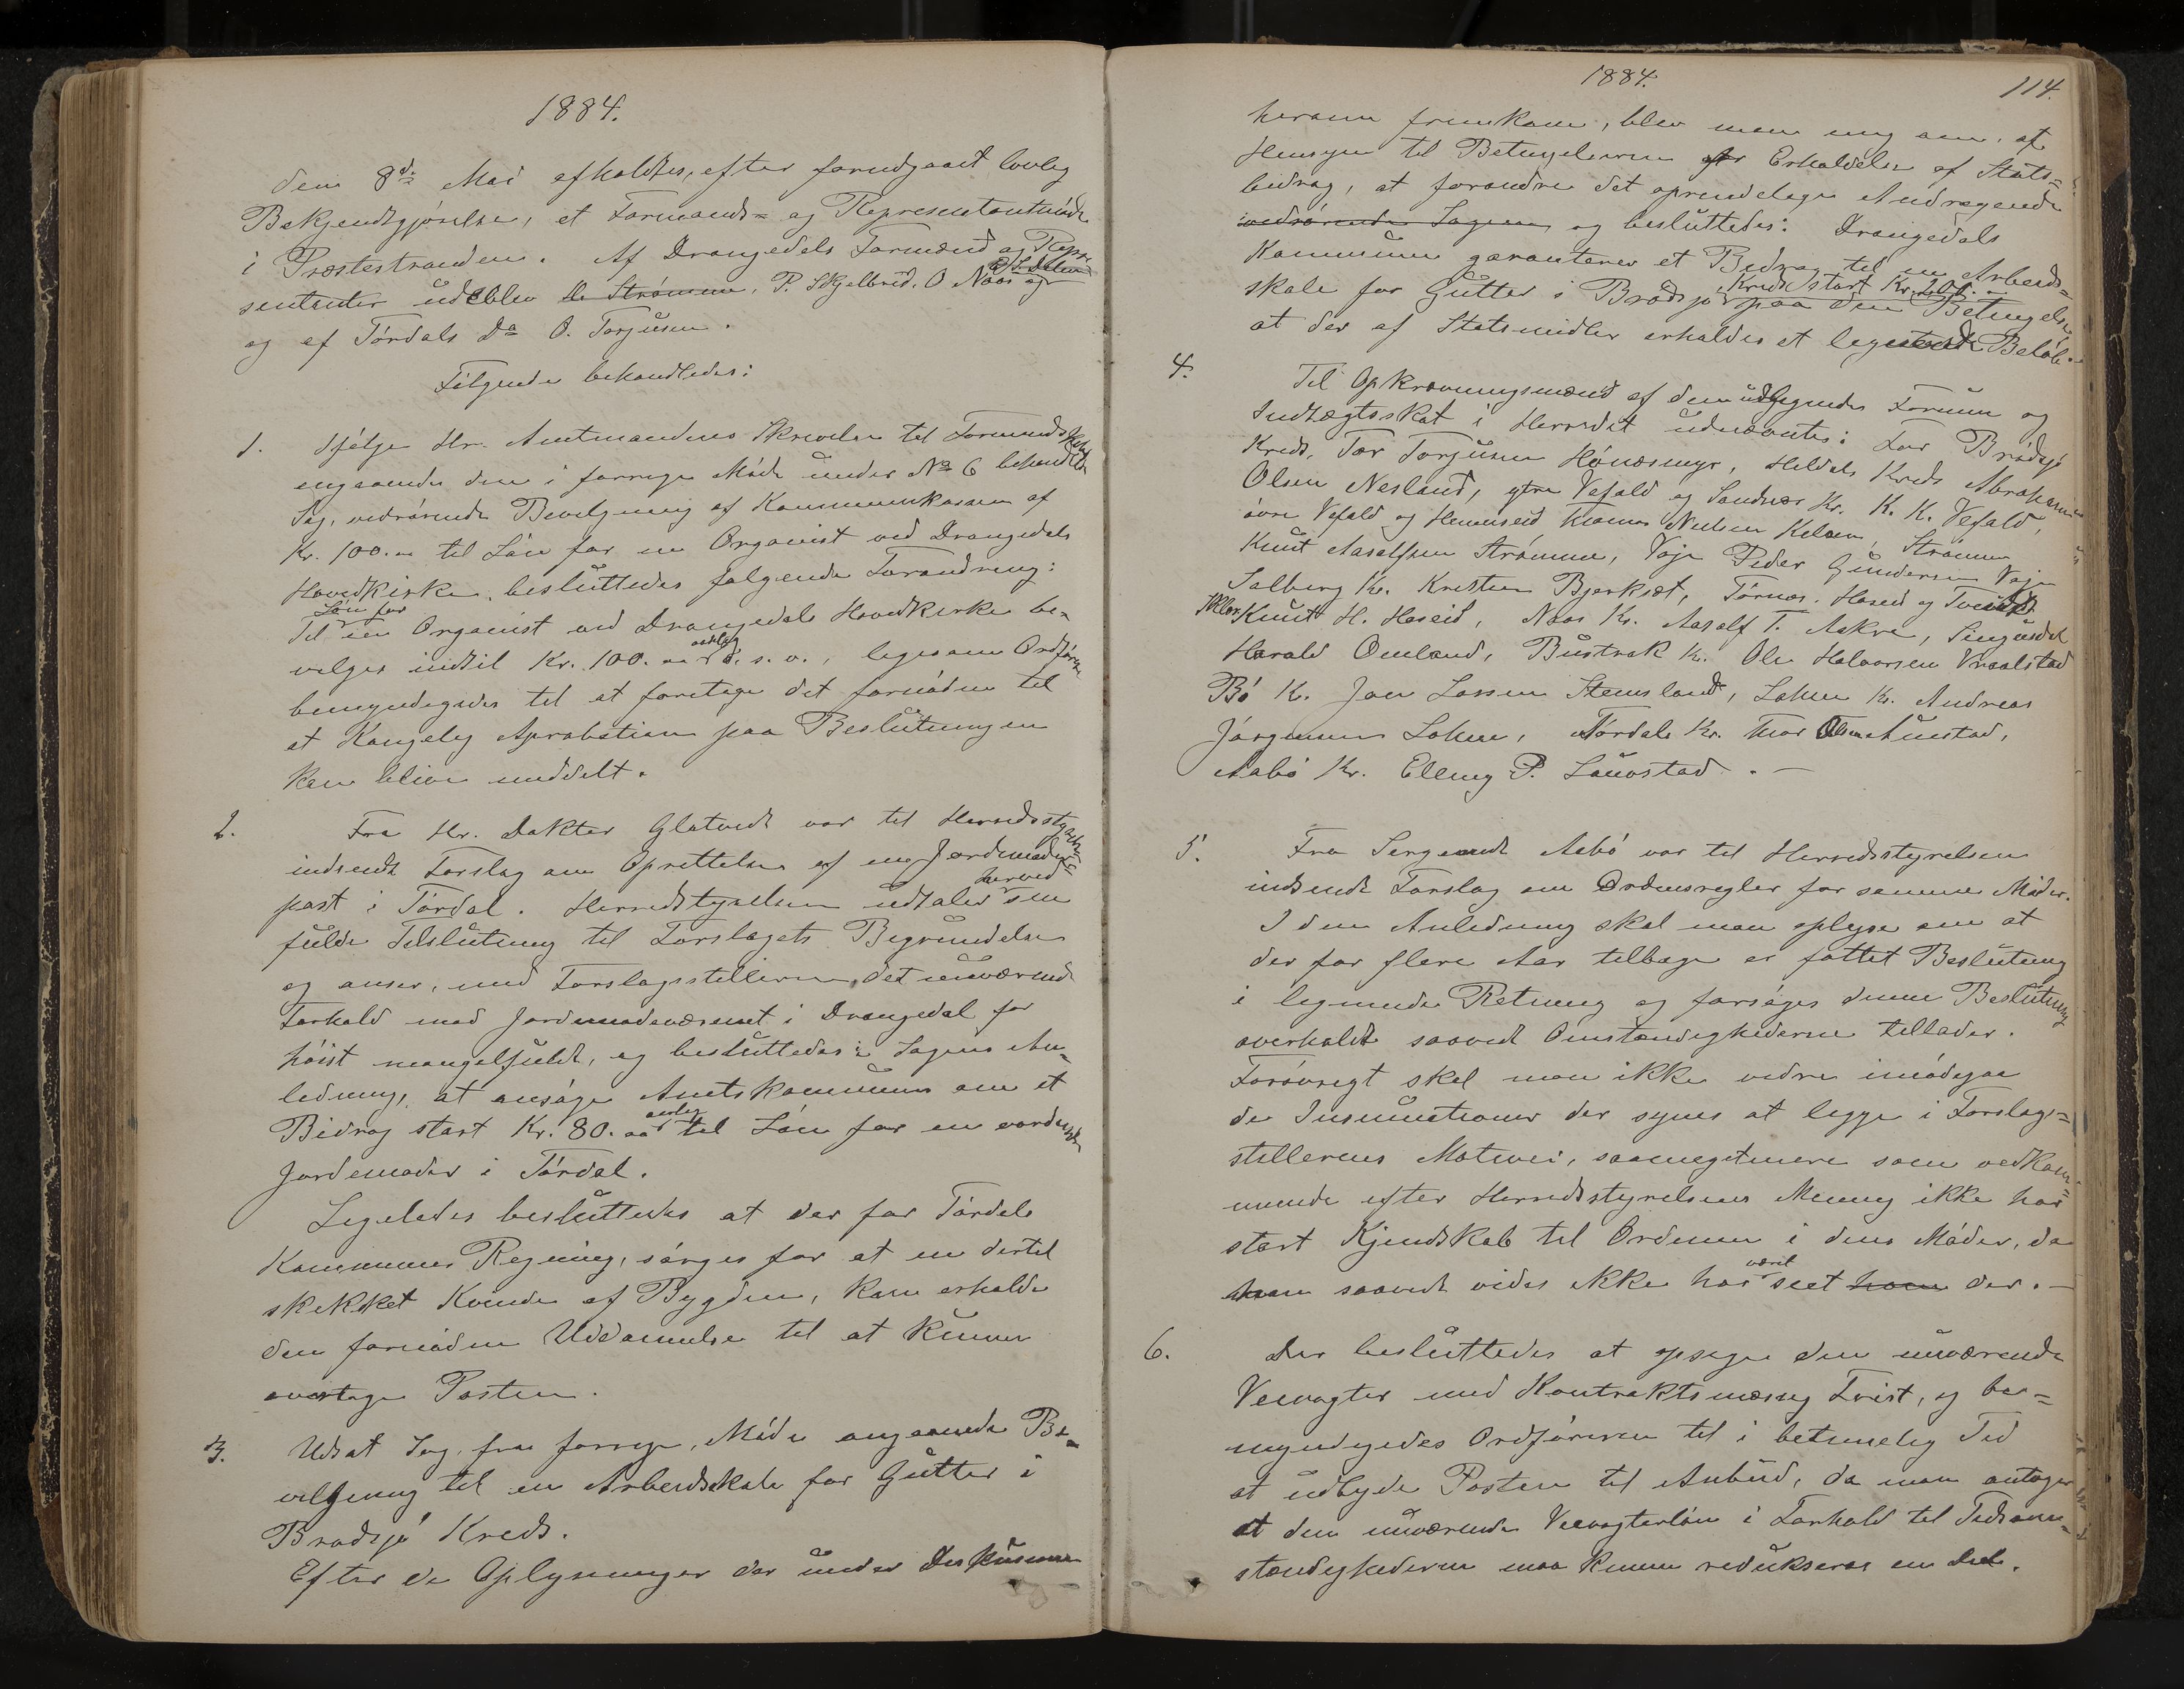 1884.
Den 8de Mai afholdtes, efter forudgaaet lovlig
Bekjendtgjørelse, et Formands- og Representantmøde
i Præstestranden. Af Drangedals Formænd og Repre-
sentanter udeblev P. Skjelbred, O Naas og
og af Tørdals Do O. Torjusen.
Følgende behandledes:
1. Ifølge Hr. Amtmandens Skrivelse til Formandskabet
angaaende den i forrige Møde under No 6 behandlede
Sag, vedrørende Bevilgning af Kommunekassen af
Kr. 100.00 til Løn for en Organist ved Drangedals
Hovedkirke, besluttedes følgende Forandring:
Løn for
Til en Organist ved Drangedals Hovedkirke be-
vilges indtil Kr. 100.00 aarlig o. s. v., ligesom Ordføreren
bemyndigedes til at foretage det fornødne til
at Kongelig Aprobation paa Beslutningen
kan blive meddelt.
2. Fra Hr. Doktor Glatvedt var til Herredsstyrelsen
indsendt Forslag om Oprettelse af en Jordmoder-
post i Tørdal. Herredstyrelsen udtaler herved sin
fulde Tilslutning til Forslagets Begrundelse
og anser, med Forslagsstilleren, det nuværende
Forhold med Jordemodervæsenet i Drangedal for
høist mangelfuldt, og besluttedes i Sagens An-
ledning, at ansøge Amtskommunen om et
Bidrag stort Kr. 80.00 aarlig til Løn for en vordende
Jordemoder i Tørdal.
Ligeledes besluttedes at der for Tørdals
Kommunes Regning, sørges for at en dertil
skikket Kvinde af Bygden, kan erholde
den fornødne Uddannelse til at kunne
overtage Posten.
3. Udsat Sag fra forrige Møde angaaende Be-
vilgning til en Arbeidsskole for Gutter i
Brødsjø Kreds.
Efter de Oplysninger der under Diskusionen
1884. 114.
herom fremkom, blev man enig om, at
Hensyn til Betingelserne for Erholdelse af Stats-
bidrag, at forandre det oprindelige Andragende
vedrørende Sagen og besluttedes: Drangedals
Kommune garanterer et Bidrag til en Arbeids-
skole for Gutter i Brødsjø Kreds stort Kr. 20. paa den Betingelse,
at der af Statsmidler erholdes et ligestort Beløb.
4. Til Opkrævningsmænd af den udlignede Formue og
Indtægtsskat i Herredet udnævntes: For Brødsjø
Kreds, Tor Torjusen Hønæsmyr, Heldals Kreds Abraham
Olsen Nesland, ytre Vefald og Sandnæs Kr. K. K. Vefald,
øvre Vefald og Henseid Kr. Nielsen, Strømme
Knut Aasolfsen Strømme, Voje Peder Gundersen Voje
Solberg Kr. Kristen Bjerksæt, Tørnes, Hoseid og Tveidt
Knut H. Hoseid, Naas Kr. Aasolf T. Aakre, Singusdal
Harald Omland, Bustrak Kr. Ole Halvorsen Vraalstad
Bø K. Jon Larsen Stensland, Lohne Kr. Andreas
Jørgensen Lohne, Tørdals Kr. Thor Olsen Aunstad,
Aabø Kr. Elling P. Lauvstad. —
5. Fra Sergeant Aabø var til Herredsstyrelsen
indsendt Forslag om Ordensregler for samme Møder.
I den Anledning skal man oplyse om at
der for flere Aar tilbage er fattet Beslutning
i lignende Retning og forsøges denne Beslutning
overholdt saavidt Omstændighederne tillader.
Forøvrigt skal man ikke videre imødegaa
de Insinuationer der synes at ligge i Forslags-
stillerens Motiver, saameget mere som vedkom-
mende efter Herredsstyrelsens Mening ikke har
stort Kjendskab til Ordenen i dens Møder, da
han saavidt vides ikke har været seet ham der. —
6. Der besluttedes at opsige den nuværende
Veivogter med Kontraktsmæsig Frist, og be-
myndigedes Ordføreren til i betimelig Tid
at udbyde Posten til Anbud, da man antager
at den nuværende Veivogterløn i Forhold til Tidsom-
stændighederne maa kunne reduseres en Del.